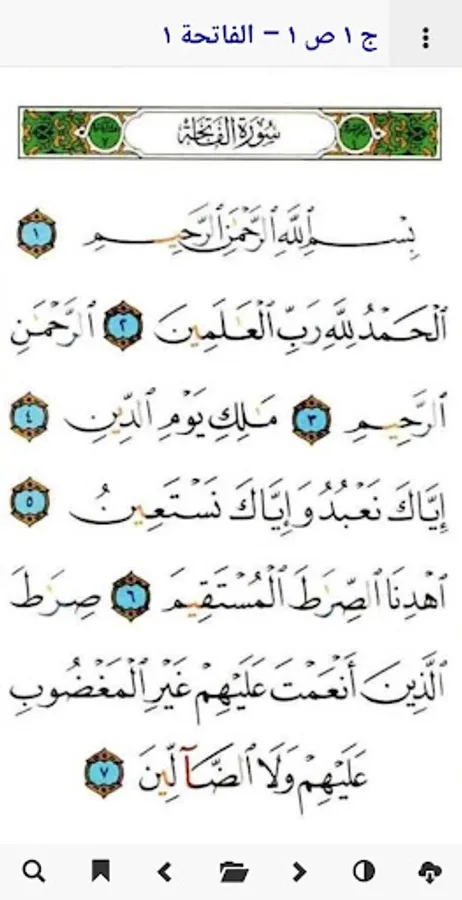 ج ١ ص ١ – الفاتحة ١
سُورَةُ الْفَاتِحَةِ
بِسْمِ ٱللَّهِ ٱلرَّحْمَٰنِ ٱلرَّحِيمِ ١
ٱلْحَمْدُ لِلَّهِ رَبِّ ٱلْعَٰلَمِينَ ٢ ٱلرَّحْمَٰنِ
ٱلرَّحِيمِ ٣ مَٰلِكِ يَوْمِ ٱلدِّينِ ٤
إِيَّاكَ نَعْبُدُ وَإِيَّاكَ نَسْتَعِينُ ٥
ٱهْدِنَا ٱلصِّرَٰطَ ٱلْمُسْتَقِيمَ ٦ صِرَٰطَ
ٱلَّذِينَ أَنْعَمْتَ عَلَيْهِمْ غَيْرِ ٱلْمَغْضُوبِ
عَلَيْهِمْ وَلَا ٱلضَّآلِّينَ ٧